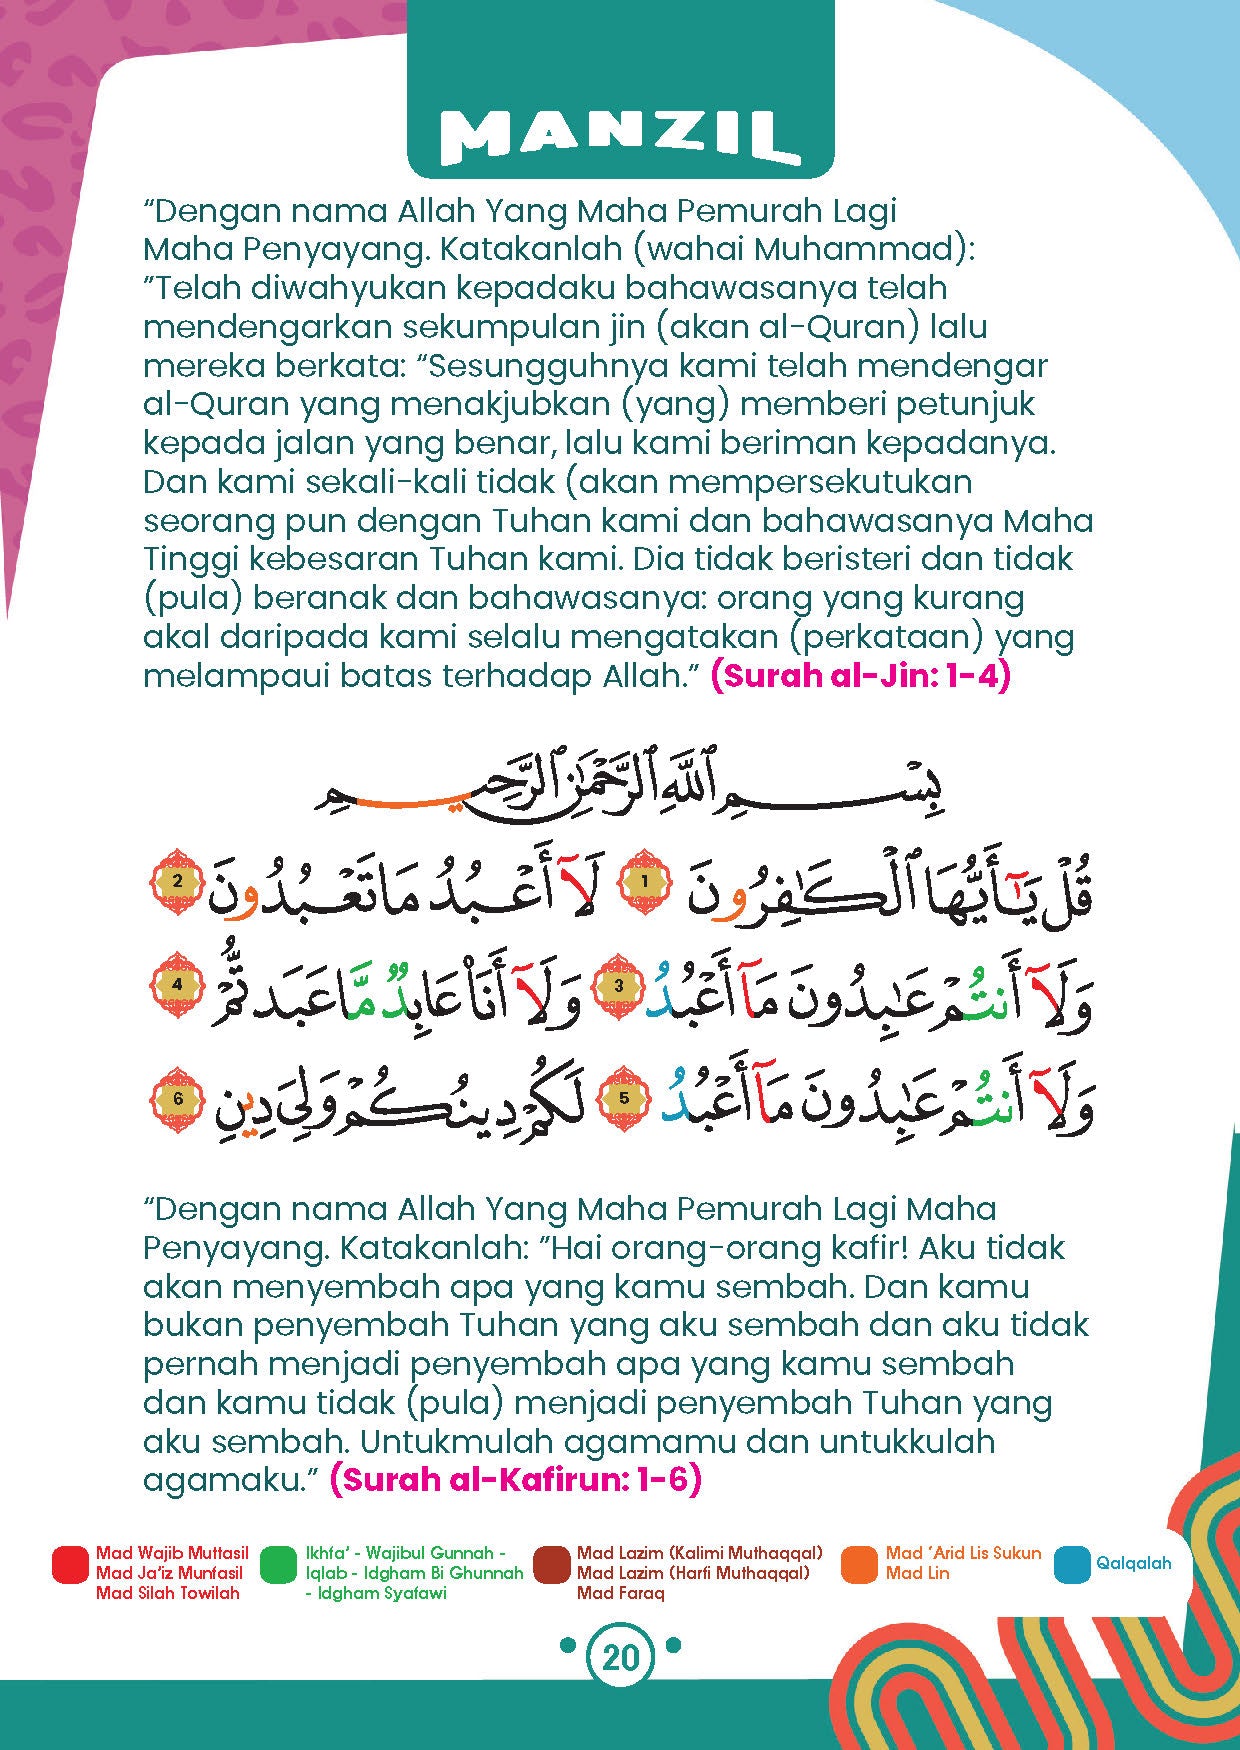 MANZIL
“Dengan nama Allah Yang Maha Pemurah Lagi
Maha Penyayang. Katakanlah (wahai Muhammad):
”Telah diwahyukan kepadaku bahawasanya telah
mendengarkan sekumpulan jin (akan al-Quran) lalu
mereka berkata: “Sesungguhnya kami telah mendengar
al-Quran yang menakjubkan (yang) memberi petunjuk
kepada jalan yang benar, lalu kami beriman kepadanya.
Dan kami sekali-kali tidak (akan mempersekutukan
seorang pun dengan Tuhan kami dan bahawasanya Maha
Tinggi kebesaran Tuhan kami. Dia tidak beristeri dan tidak
(pula) beranak dan bahawasanya: orang yang kurang
akal daripada kami selalu mengatakan (perkataan) yang
melampaui batas terhadap Allah.” (Surah al-Jin: 1-4)
بِسْمِ ٱللَّهِ ٱلرَّحْمَٰنِ ٱلرَّحِيمِ
قُلْ يَٰٓأَيُّهَا ٱلْكَٰفِرُونَ 1 لَآ أَعْبُدُ مَا تَعْبُدُونَ 2
وَلَآ أَنتُمْ عَٰبِدُونَ مَآ أَعْبُدُ 3 وَلَآ أَنَا۠ عَابِدٌ مَّا عَبَدتُّمْ 4
وَلَآ أَنتُمْ عَٰبِدُونَ مَآ أَعْبُدُ 5 لَكُمْ دِينُكُمْ وَلِىَ دِينِ 6
“Dengan nama Allah Yang Maha Pemurah Lagi Maha
Penyayang. Katakanlah: ”Hai orang-orang kafir! Aku tidak
akan menyembah apa yang kamu sembah. Dan kamu
bukan penyembah Tuhan yang aku sembah dan aku tidak
pernah menjadi penyembah apa yang kamu sembah
dan kamu tidak (pula) menjadi penyembah Tuhan yang
aku sembah. Untukmulah agamamu dan untukkulah
agamaku.” (Surah al-Kafirun: 1-6)
Mad Wajib Muttasil
Mad Ja’iz Munfasil
Mad Silah Towilah
Ikhfa’ - Wajibul Gunnah -
Iqlab - Idgham Bi Ghunnah
- Idgham Syafawi
Mad Lazim (Kalimi Muthaqqal)
Mad Lazim (Harfi Muthaqqal)
Mad Faraq
Mad ‘Arid Lis Sukun
Mad Lin
Qalqalah
20